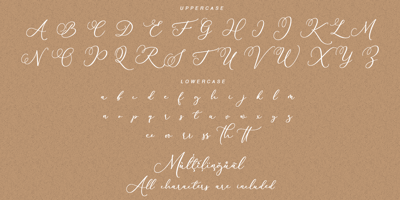 UPPERCASE
A B C D E F G H I J K L M
N O P Q R S T U V W X Y Z
LOWERCASE
a b c d e f g h i j k l m
n o p q r s t u v w x y z
Multilingual
All characters are included